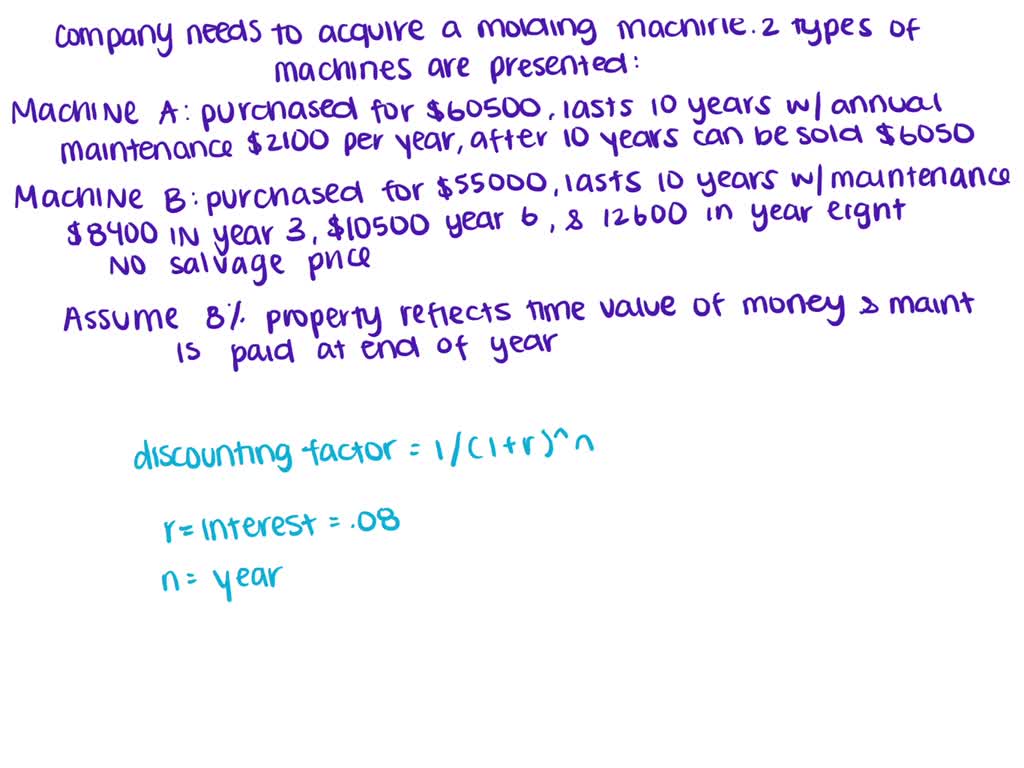 company needs to acquire a molding machine. 2 types of
machines are presented:
Machine A: purchased for $60500, lasts 10 years w/ annual
maintenance $2100 per year, after 10 years can be sold $6050
Machine B: purchased for $55000, lasts 10 years w/ maintenance
$8400 in year 3, $10500 year 6, & 12600 in year eight
No salvage price
Assume 8% property reflects time value of money & maint
is paid at end of year
discounting factor = 1/(1+r)^n
r = interest = .08
n = year